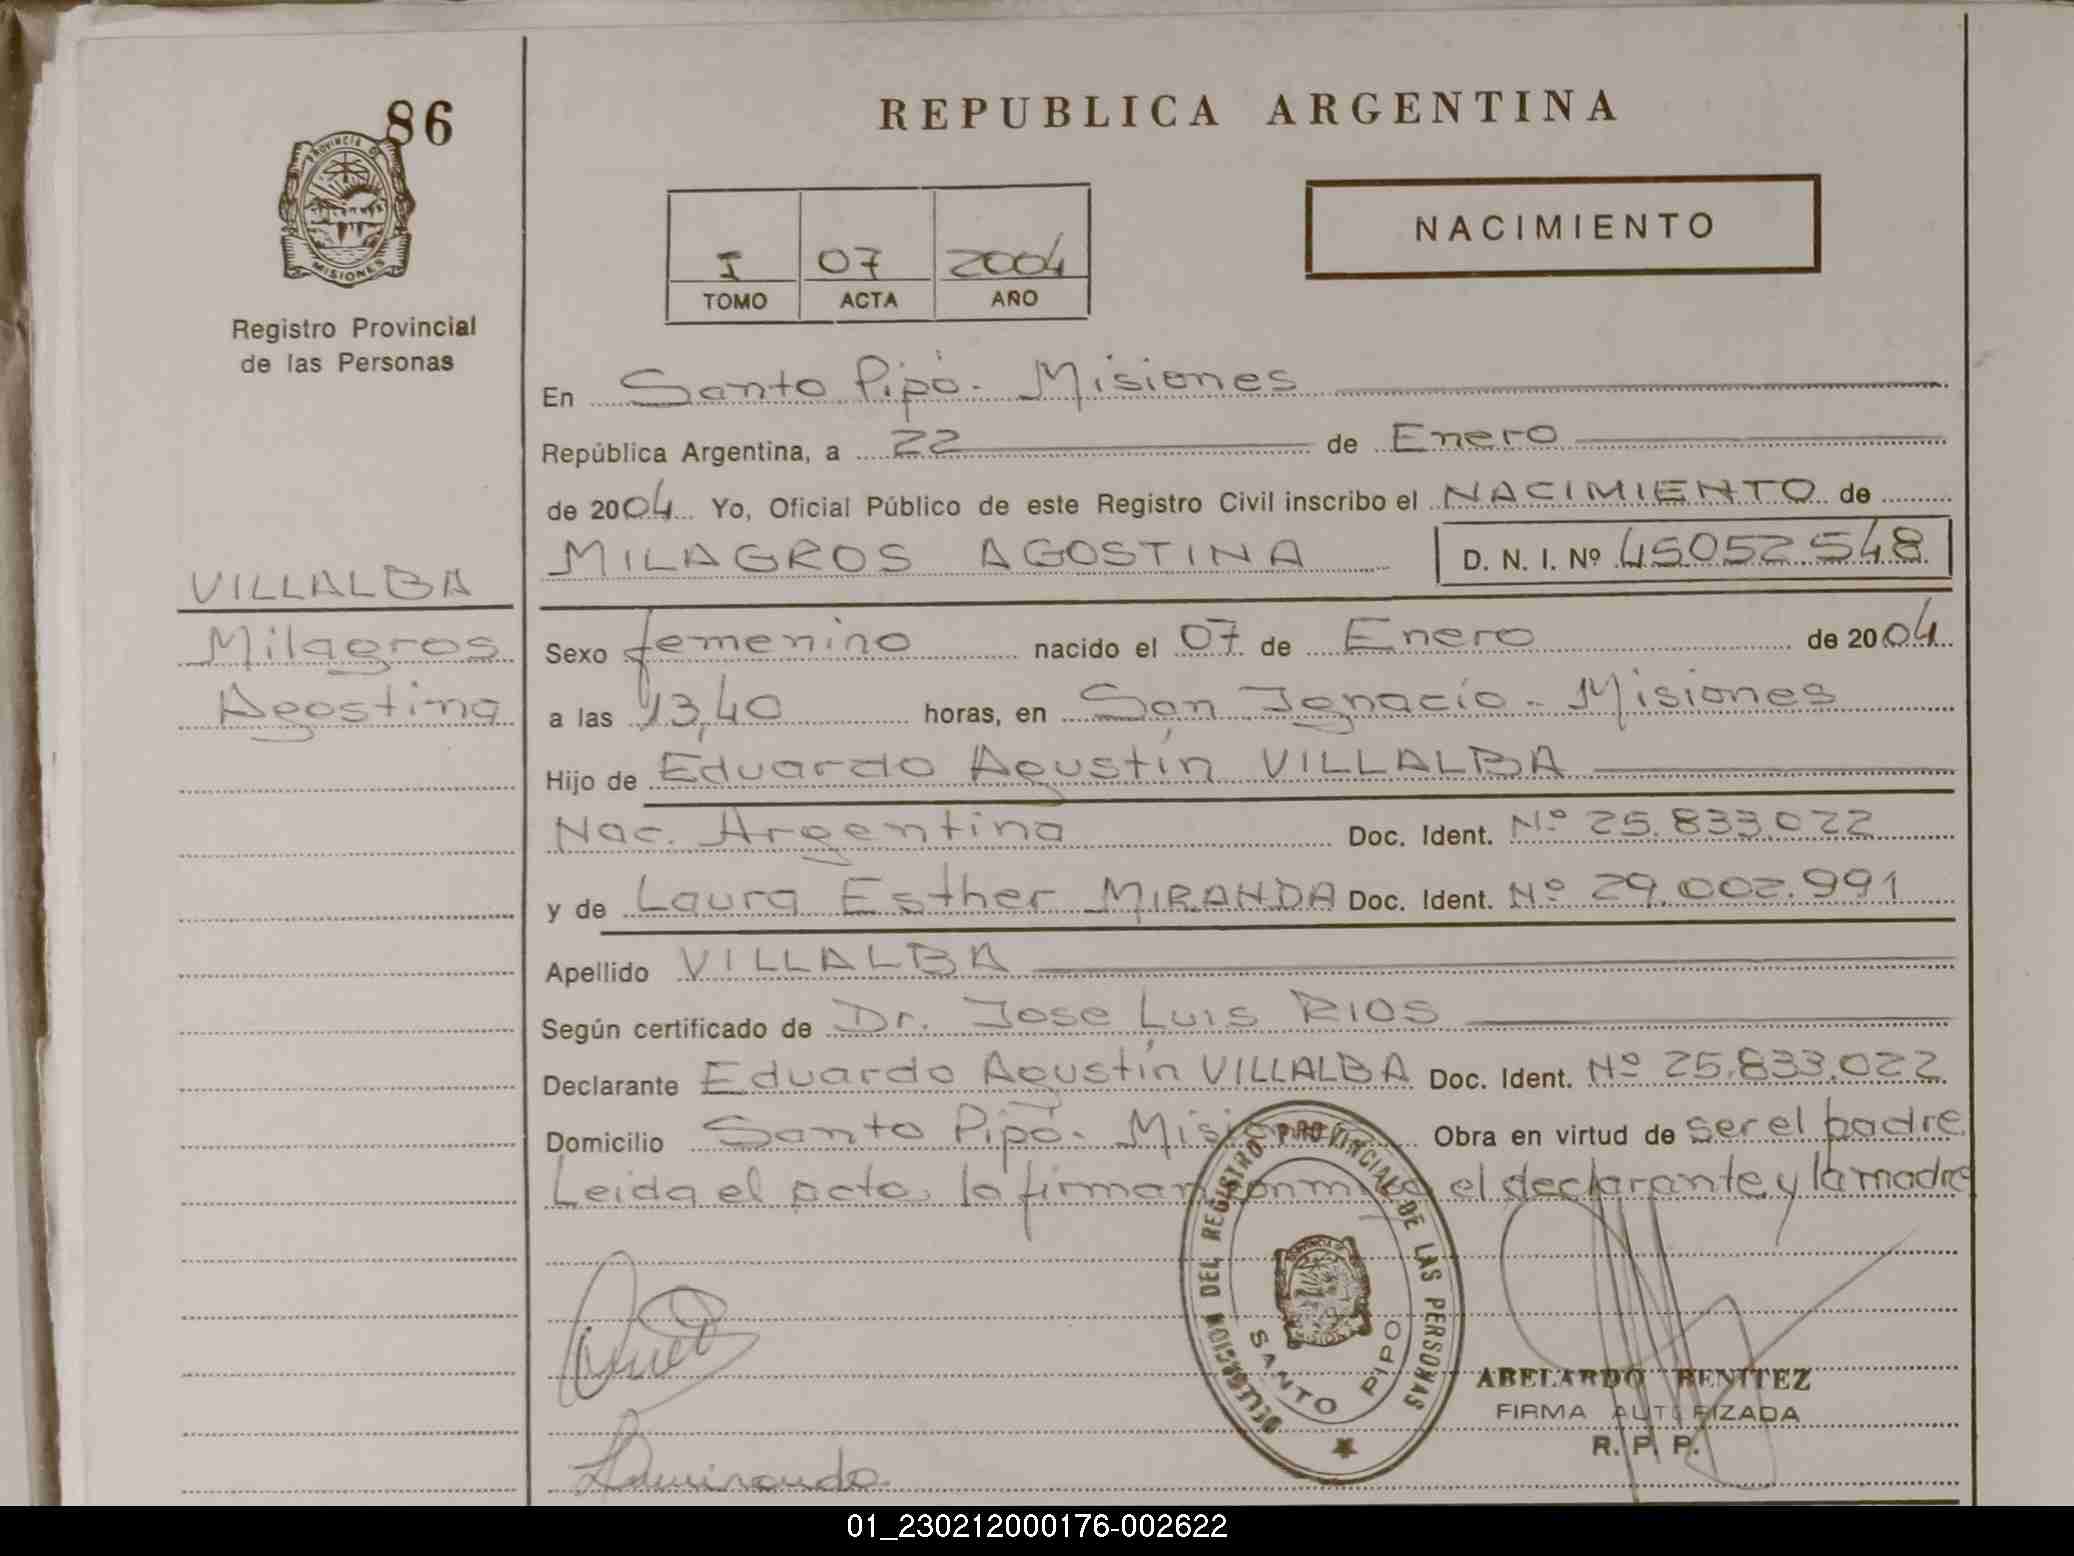 86
PROVINCIA DE
MISIONES
Registro Provincial
de las Personas
VILLALBA
Milagros
Agostina
REPUBLICA ARGENTINA
I 07 2004
TOMO ACTA AÑO
NACIMIENTO
En Santo Pipó - Misiones
República Argentina, a 22 de Enero
de 2004 Yo, Oficial Público de este Registro Civil inscribo el NACIMIENTO de
MILAGROS AGOSTINA D. N. I. Nº 45052.548
Sexo femenino nacido el 07 de Enero de 2004
a las 13,40 horas, en San Ignacio - Misiones
Hijo de Eduardo Agustín VILLALBA
Nac. Argentina Doc. Ident. Nº 25.833.022
y de Laura Esther MIRANDA Doc. Ident. Nº 29.002.991
Apellido VILLALBA
Según certificado de Dr. Jose Luis RIOS
Declarante Eduardo Agustín VILLALBA Doc. Ident. Nº 25.833.022
Domicilio Santo Pipó - Misiones Obra en virtud de ser el padre
Leida el acta, la firman conmigo el declarante y la madre
DELEGACION DEL REGISTRO PROVINCIAL DE LAS PERSONAS
SANTO PIPO
ABELARDO BENITEZ
FIRMA AUTORIZADA
R. P. P.
01_230212000176-002622